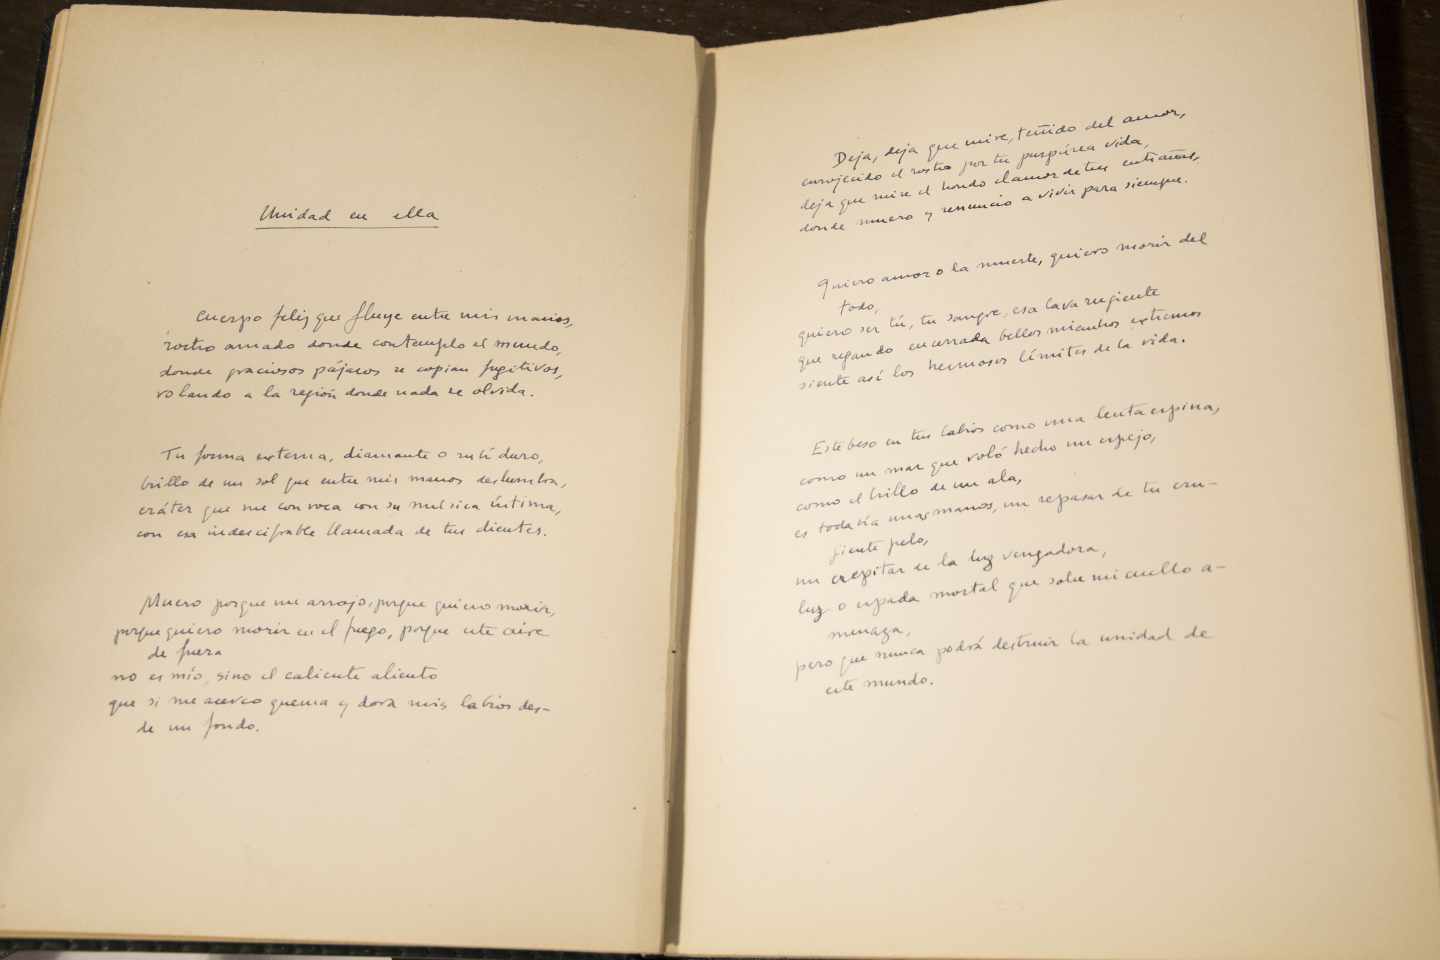 Unidad en ella
Cuerpo feliz que fluye entre mis manos,
rostro amado donde contemplo el mundo,
donde graciosos pájaros se copian fugitivos,
volando a la región donde nada se olvida.
Tu forma externa, diamante o rubí duro,
brillo de un sol que entre mis manos deslumbra,
cráter que me convoca con su música íntima,
con esa indescifrable llamada de tus dientes.
Muero porque me arrojo, porque quiero morir,
porque quiero morir en el fuego, porque este aire
de fuera
no es mío, sino el caliente aliento
que si me acerco quema y dora mis labios des-
de un fondo.
Deja, deja que mire, teñido del amor,
enrojecido el rostro por tu purpúrea vida,
deja que mire el hondo clamor de tus entrañas,
donde muero y renuncio a vivir para siempre.
Quiero amor o la muerte, quiero morir del
todo,
quiero ser tú, tu sangre, esa lava rugiente
que regando encerrada bellos miembros extremos
siente así los hermosos límites de la vida.
Este beso en tus labios como una lenta espina,
como un mar que voló hecho un espejo,
como el brillo de un ala,
es todavía unas manos, un repasar de tu cru-
jiente pelo,
un crepitar de la luz vengadora,
luz o espada mortal que sobre mi cuello a-
menaza,
pero que nunca podrá destruir la unidad de
este mundo.